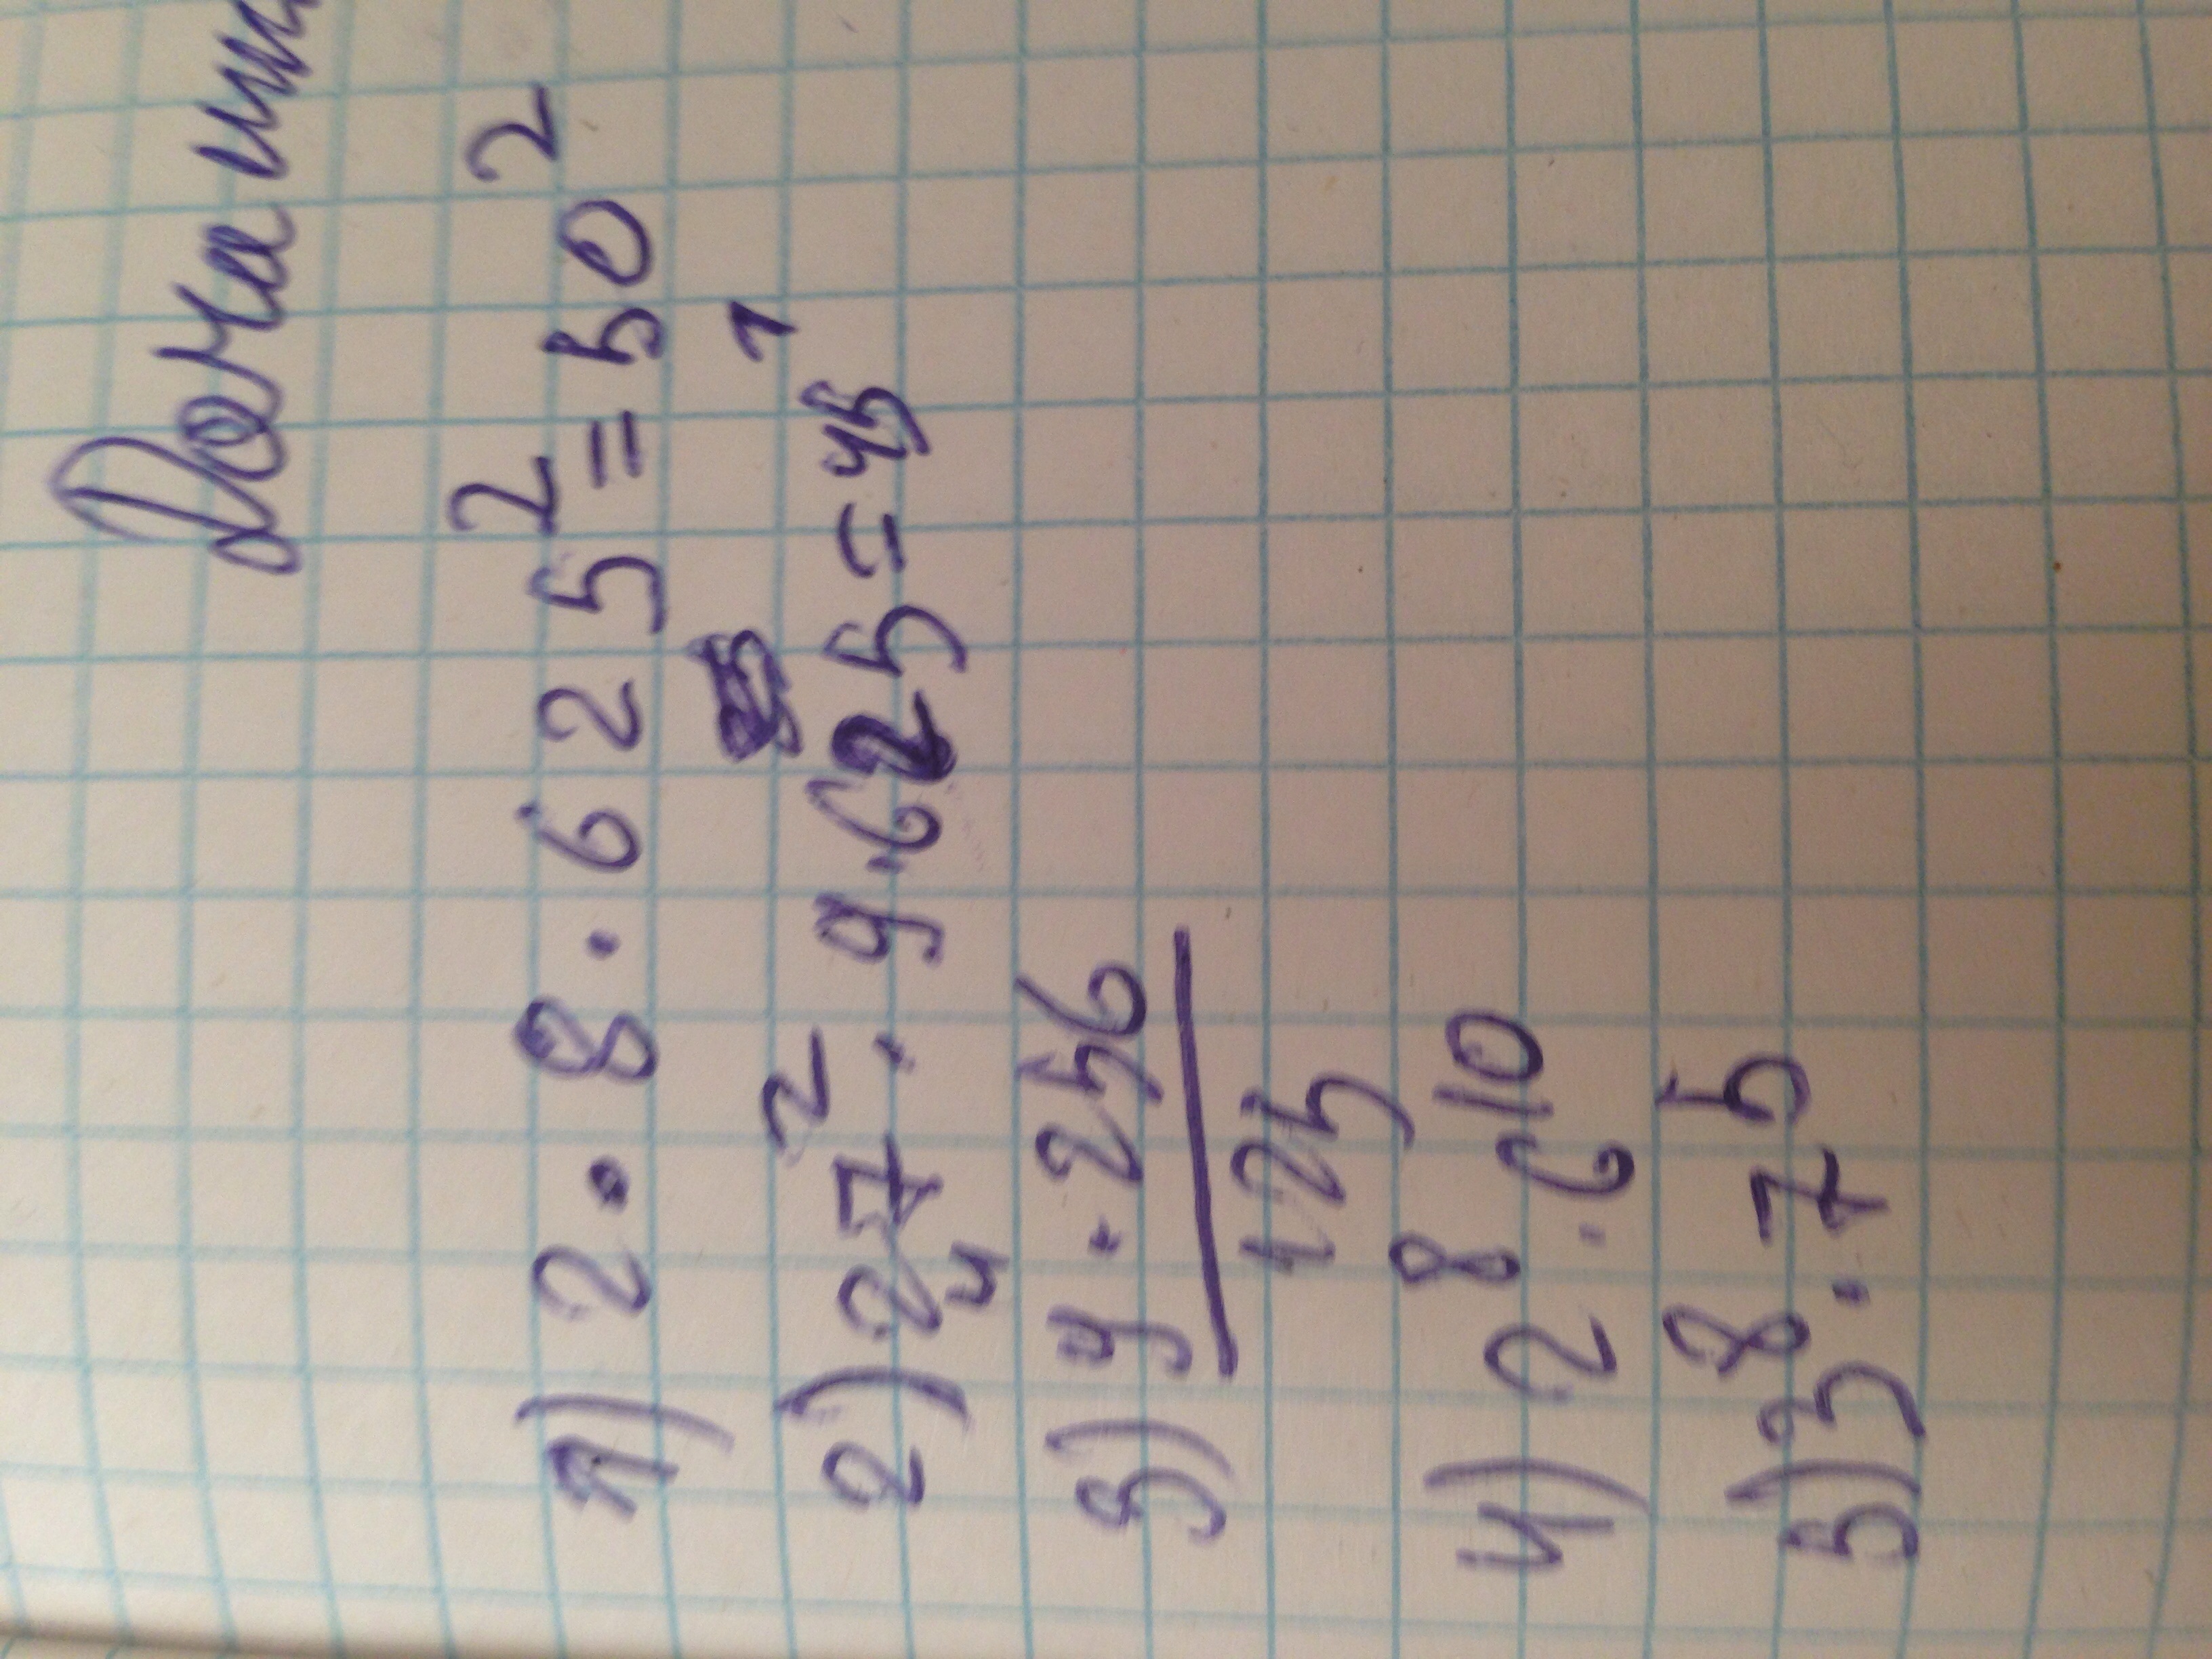 1) 2 · 8 · 625² = 50²
2) 27² · 9 · 625 = 45¹
4
3) 4 · 256
125
4) 2⁸ · 6¹⁰
5) 3⁸ · 7⁵